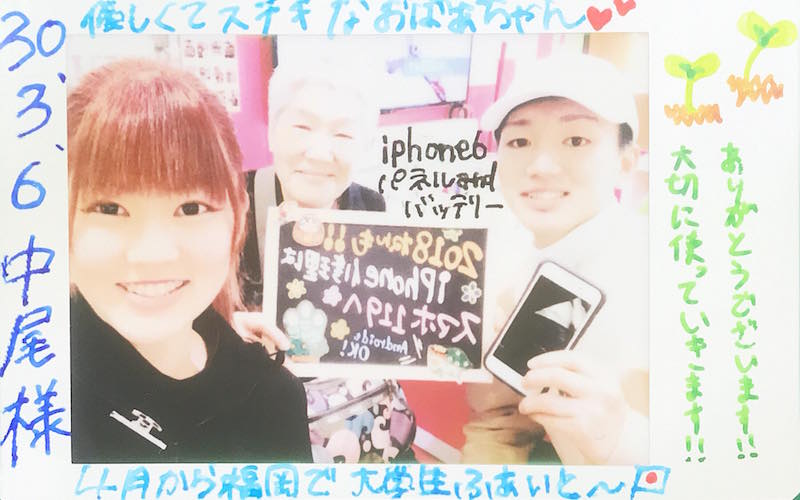 優しくてステキなおばあちゃん
30.3.6 中尾様
iphone6
パネルand
バッテリー
2018ねんも!!
iPhone修理は
スマホ119へ
Android
OK!
ありがとうございます!!
大切に使っていきます!!
4月から福岡で大学生ふぁいと〜